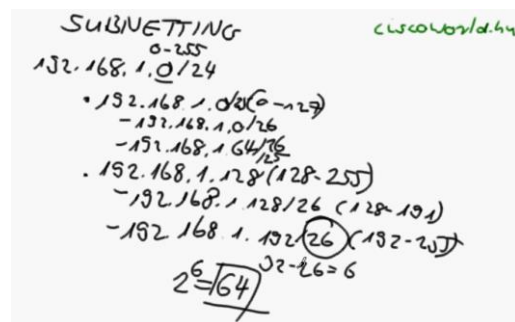 SUBNETTING
ciscoworld.hu
0-255
192.168.1.0/24
• 192.168.1.0/25(0-127)
- 192.168.1.0/26
- 192.168.1.64/26
/25
• 192.168.1.128(128-255)
- 192.168.1.128/26 (128-191)
- 192.168.1.192/26 (192-255)
32-26=6
2^6=64